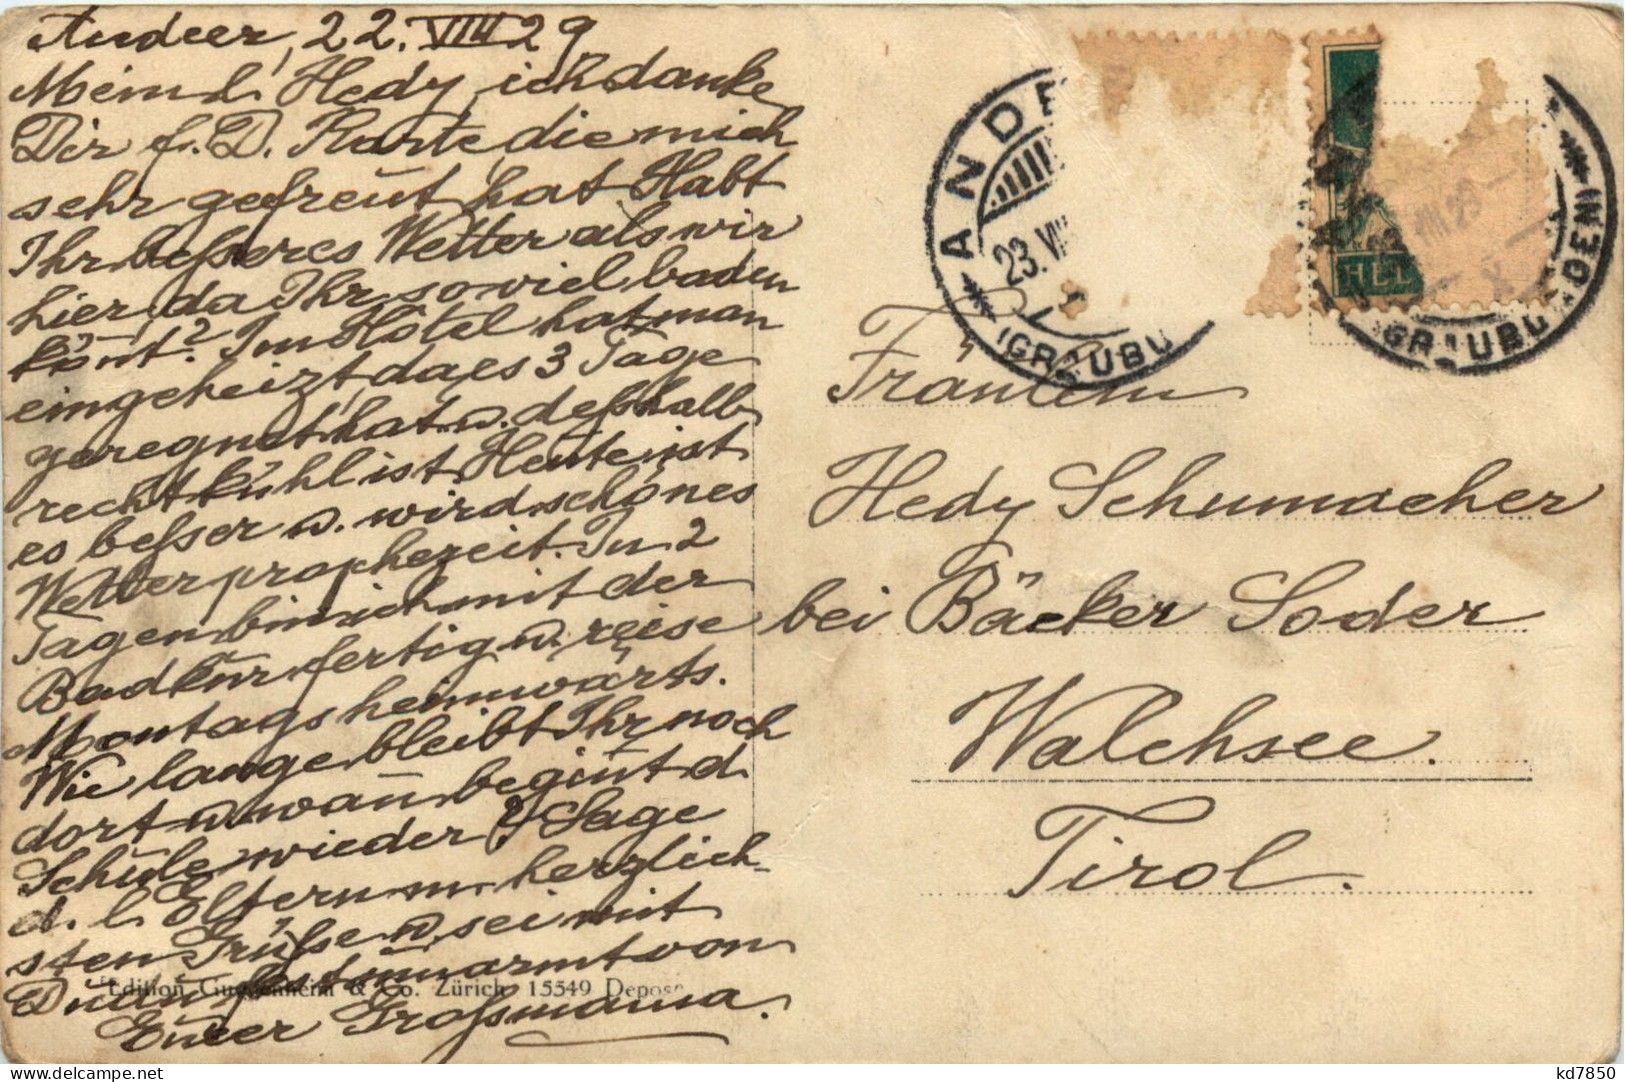 Andeer, 22. VIII 29
Mein l. Hedy, ich danke
Dir f. D. Karte, die mich
sehr gefreut hat. Habt
Ihr beßeres Wetter als wir
hier, da Ihr soviel baden
könt? Im Hôtel hat man
eingeheizt, da es 3 Tage
geregnet hat u. deßhalb
recht kühl ist. Heute ist
es beßer u. wird schönes
Wetter prophezeit. In 2
Tagen bin ich mit der
Badkur fertig u. reise
Montags heimwärts.
Wie lange bleibt Ihr noch
dort u. wan̄ begin̄t d.
Schule wieder? Sage
d. l. Eltern m. herzlich-
sten Grüße u. sei mit
umarmt von
Euer Großmama.
Edition Guggenheim & Co. Zürich 15549
ANDE
23. VIII
(GRAUBÜ
HEL
VIII.29
(GRAUBÜNDEN)
Fräulein
Hedy Schumacher
bei Bäcker Soder
Walchsee.
Tirol.
kd7850